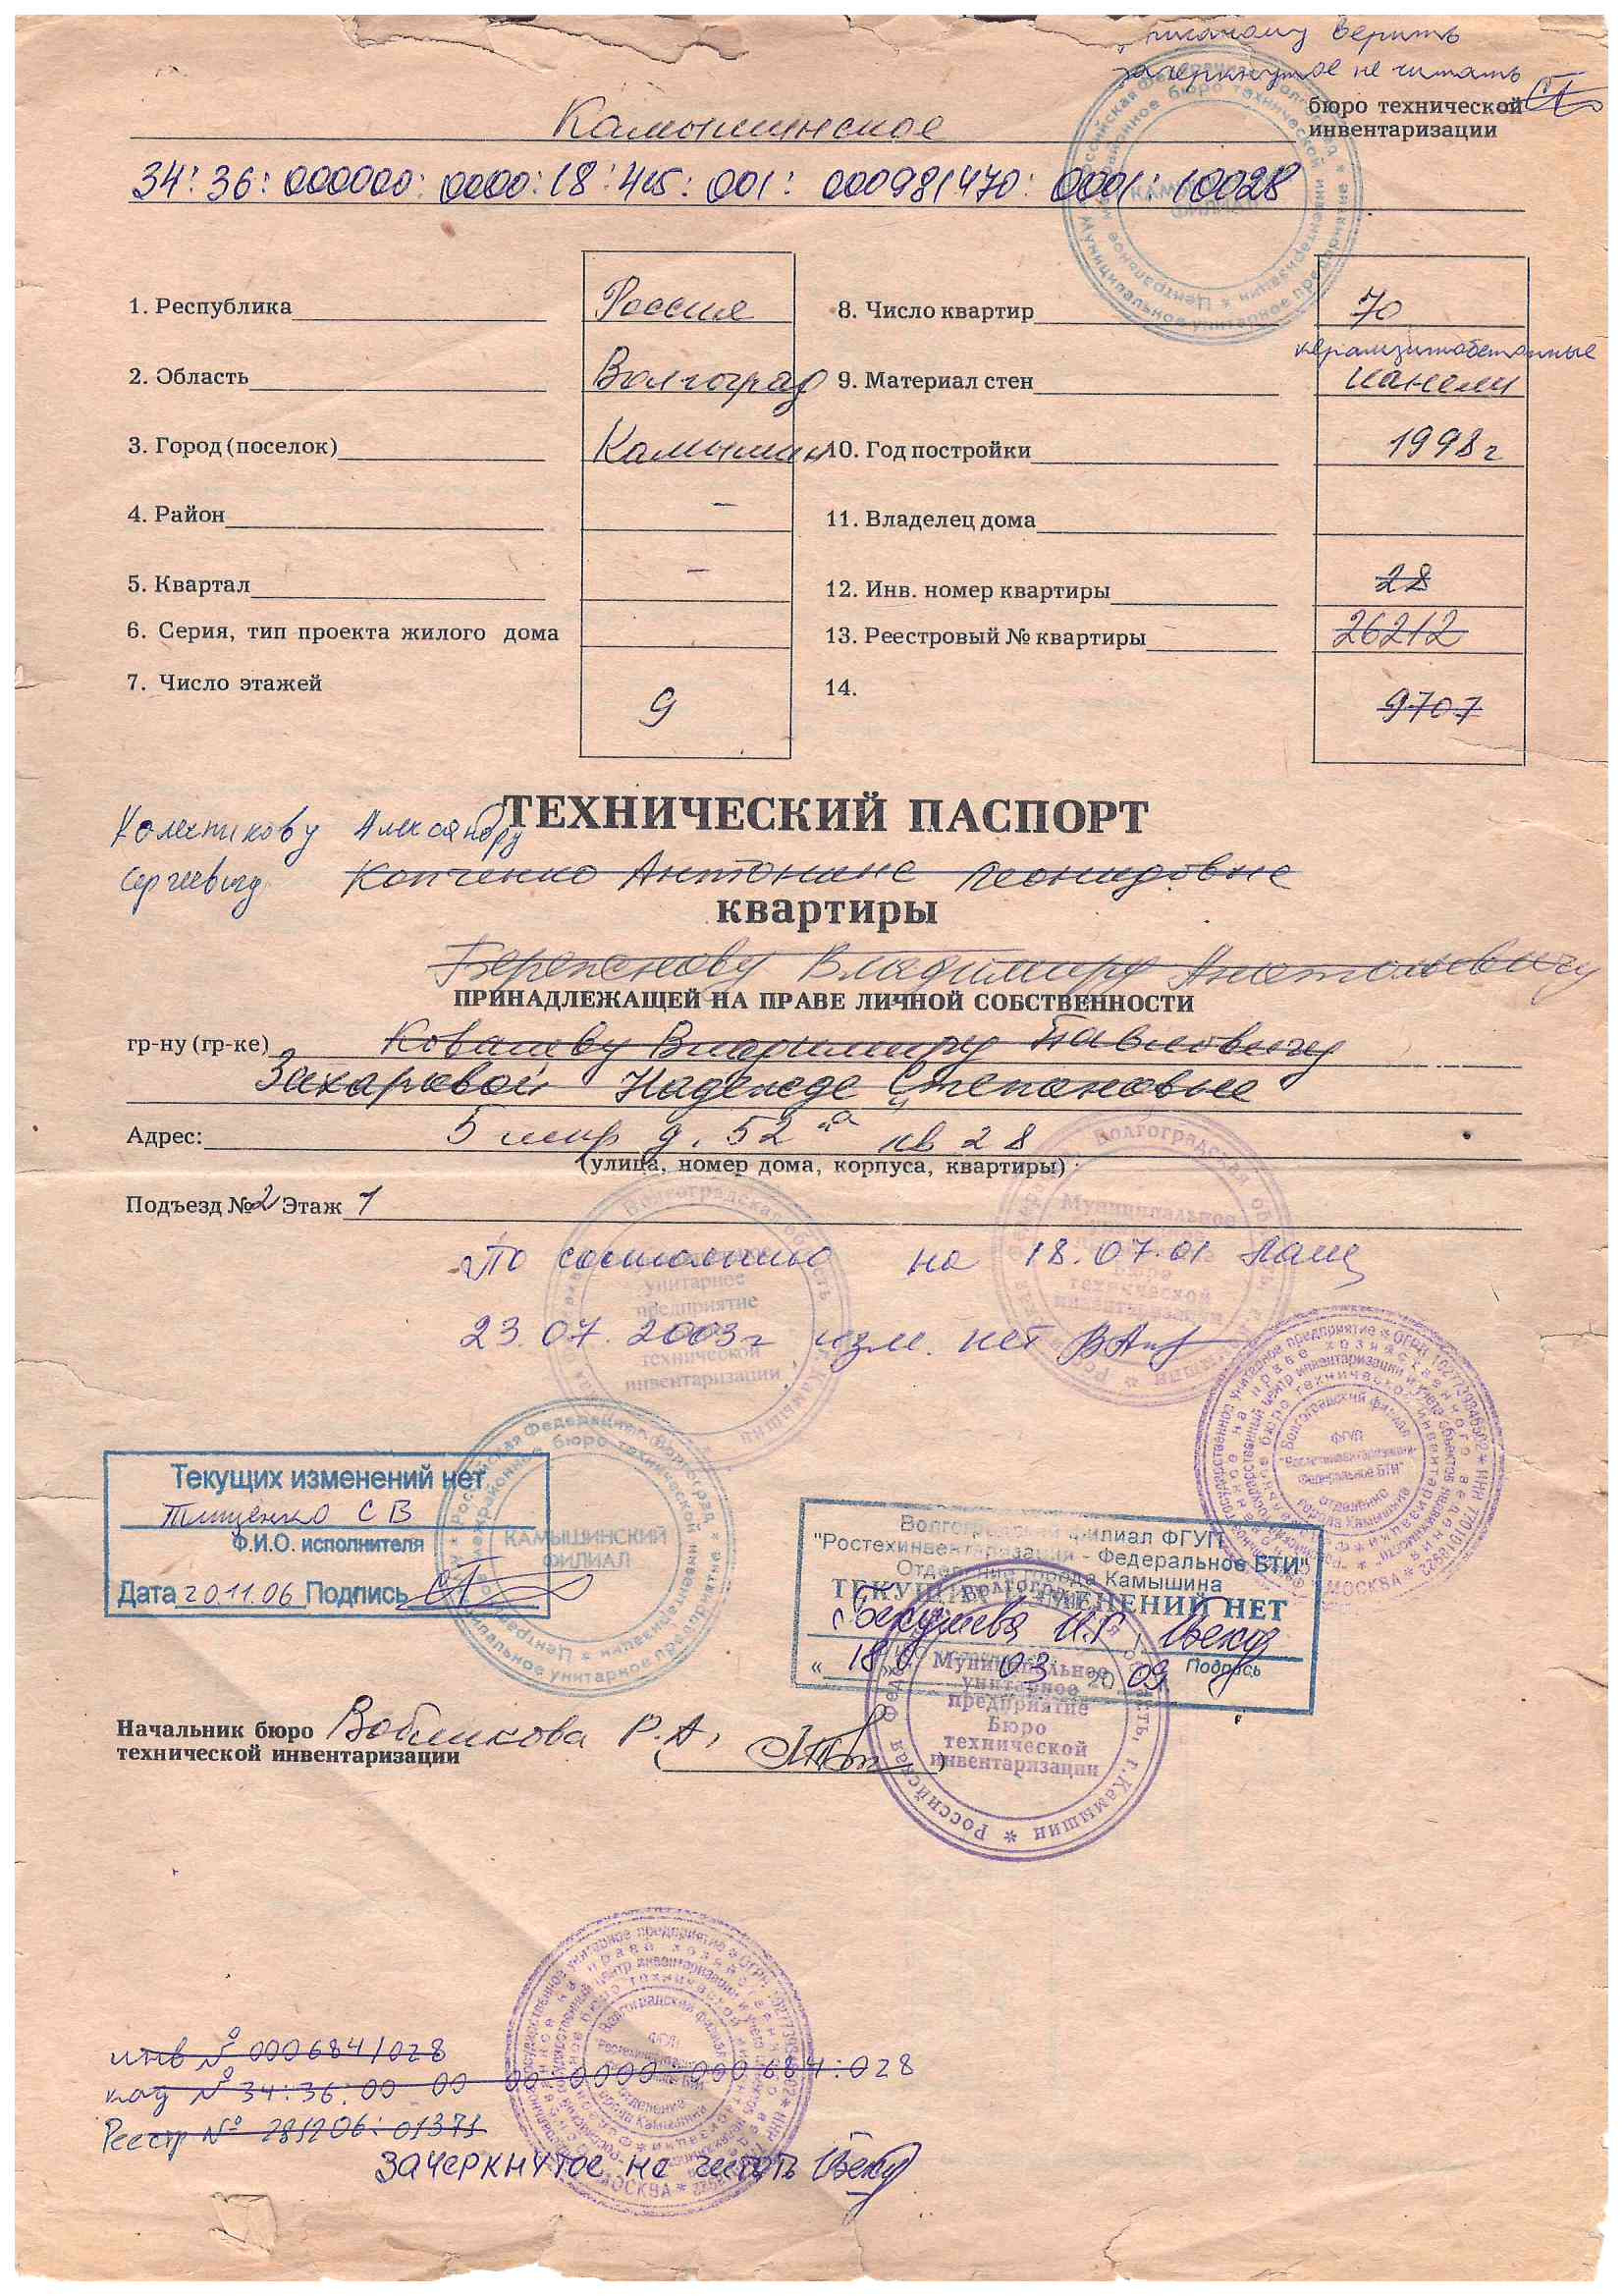 писаному верить
зачеркнутое не читать
Камышинское
бюро технической
инвентаризации
34:36:000000:0000:18:415:001:000981470:0001:10028
1. Республика Россия
2. Область Волгоград
3. Город (поселок) Камышин
4. Район –
5. Квартал –
6. Серия, тип проекта жилого дома
7. Число этажей 9
8. Число квартир 70
керамзитобетонные
9. Материал стен панели
10. Год постройки 1998 г
11. Владелец дома
12. Инв. номер квартиры 28
13. Реестровый № квартиры 26212
14. 9707
ТЕХНИЧЕСКИЙ ПАСПОРТ
Александру
Сергеевичу Копченко Антонине Леонидовне
квартиры
Владимиру Анатольевичу
ПРИНАДЛЕЖАЩЕЙ НА ПРАВЕ ЛИЧНОЙ СОБСТВЕННОСТИ
гр-ну (гр-ке) Ковалеву Владимиру Павловичу
Захаровой Надежде Степановне
Адрес: 5 мкр д. 52 "а" кв 28
(улица, номер дома, корпуса, квартиры)
Подъезд № 2 Этаж 1
По состоянию на 18.07.01
23.07.2003 г изм. нет
Текущих изменений нет
Тищенко С В
Ф.И.О. исполнителя
Дата 20.11.06 Подпись
КАМЫШИНСКИЙ
ФИЛИАЛ
Волгоградский филиал ФГУП
"Ростехинвентаризация - Федеральное БТИ"
Отделение города Камышина
ТЕКУЩИХ ИЗМЕНЕНИЙ НЕТ
Подпись
« 18 » 03 20 09
Муниципальное
унитарное
предприятие
Бюро
технической
инвентаризации
Российская Федерация
г. Камышин
Начальник бюро
технической инвентаризации
Р.А.
инв № 000684/028
код № 34:36:00 00 00:0000:000684:028
Реестр № 281206:01371
ЗАЧЕРКНУТОЕ не читать